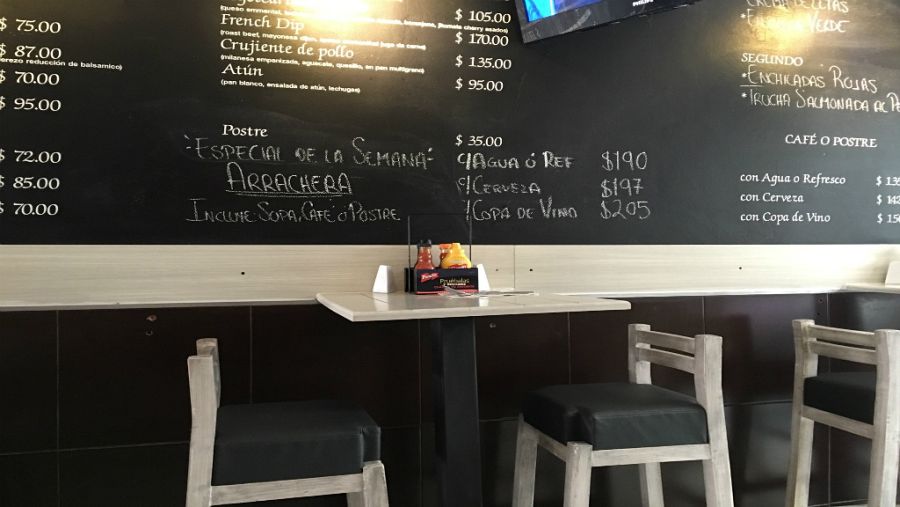 $ 75.00
$ 87.00
erezo reducción de balsamico)
$ 70.00
$ 95.00
$ 72.00
$ 85.00
$ 70.00
$ 105.00
French Dip $ 170.00
Crujiente de pollo $ 135.00
(milanesa empanizada, aguacate, quesillo, en pan multigrano)
Atún $ 95.00
(pan blanco, ensalada de atún, lechugas)
Postre $ 35.00
-Especial de la Semana-
Arrachera
Incluye Sopa, Café ó Postre
c/Agua ó Ref $190
c/Cerveza $197
c/Copa de Vino $205
Verde
SEGUNDO
*Enchiladas Rojas
*Trucha Salmonada al
CAFÉ O POSTRE
con Agua o Refresco $ 135
con Cerveza $ 142
con Copa de Vino $ 150
Pruébalas